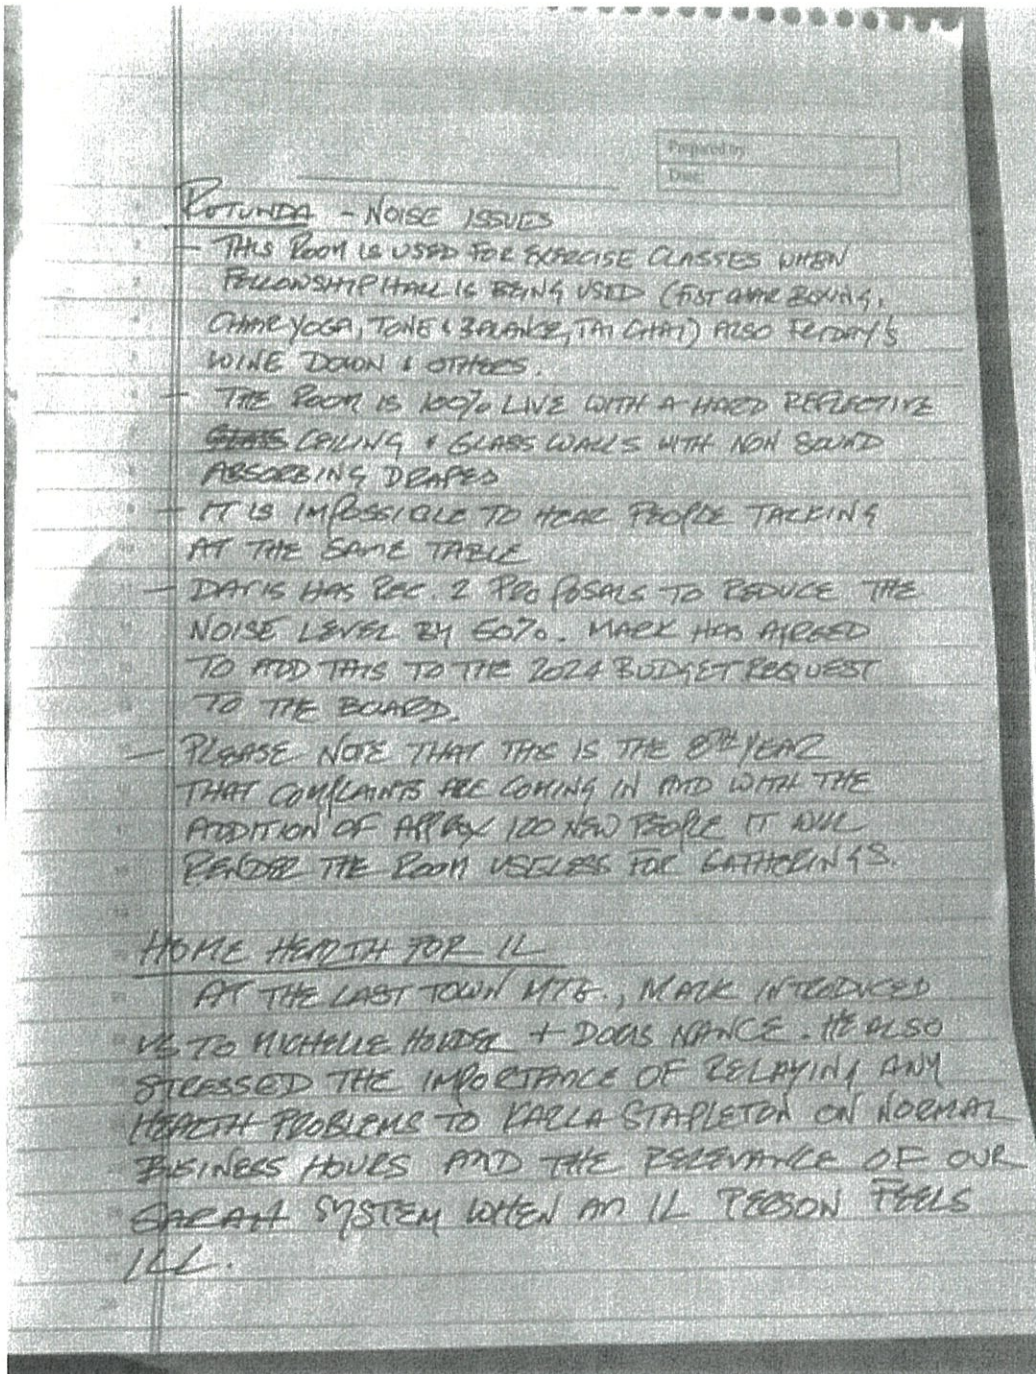 Prepared by
Date
ROTUNDA - NOISE ISSUES
- THIS ROOM IS USED FOR EXERCISE CLASSES WHEN
FELLOWSHIP HALL IS BEING USED (FIST CHAIR BOXING,
CHAIR YOGA, TONE & BALANCE, TAI CHAI) ALSO FRIDAY'S
WINE DOWN & OTHERS.
- THE ROOM IS 100% LIVE WITH A HARD REFLECTIVE
CEILING & GLASS WALLS WITH NON SOUND
ABSORBING DRAPES
- IT IS IMPOSSIBLE TO HEAR PEOPLE TALKING
AT THE SAME TABLE
- HAS REC. 2 PROPOSALS TO REDUCE THE
NOISE LEVEL BY 60%. MARK HAS AGREED
TO ADD THIS TO THE 2024 BUDGET REQUEST
TO THE BOARD.
- PLEASE NOTE THAT THIS IS THE 8TH YEAR
THAT COMPLAINTS ARE COMING IN AND WITH THE
ADDITION OF APPROX 120 NEW PEOPLE IT WILL
RENDER THE ROOM USELESS FOR GATHERINGS.
HOME HEALTH FOR IL
AT THE LAST TOWN MTG., MARK INTRODUCED
US TO MICHELLE HOLDER + NANCE. HE ALSO
STRESSED THE IMPORTANCE OF RELAYING ANY
HEALTH PROBLEMS TO KARLA STAPLETON ON NORMAL
BUSINESS HOURS AND THE RELEVANCE OF OUR
SARAH SYSTEM WHEN AN IL PERSON FEELS
ILL.